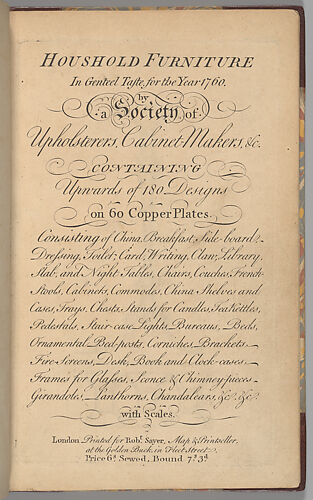 HOUSHOLD FURNITURE
In Genteel Taste, for the Year 1760.
by
a Society of
Upholsterers, Cabinet-Makers, &c.
CONTAINING
Upwards of 180 Designs
on 60 Copper Plates.
Consisting of China, Breakfast, Side-board,
Dressing, Toilet, Card, Writing, Claw, Library,
Slab, and Night Tables, Chairs, Couches, French-
Stools, Cabinets, Commodes, China Shelves and
Cases, Trays, Chests, Stands for Candles, Tea Kettles,
Pedestals, Stair-case Lights, Bureaus, Beds,
Ornamental Bed-posts, Corniches, Brackets
Fire-Screens, Desk, Book and Clock-cases
Frames for Glasses, Sconce & Chimney-pieces
Girandoles, Lanthorns, Chandalears, &c. &c.
with Scales.
London Printed for Robt. Sayer, Map & Printseller,
at the Golden Buck, in Fleet Street.
Price 6s. Sewed, Bound 7s. 3d.